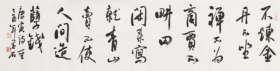 不煉金
丹不坐
禪不為
商賈不
畊田
閑來寫
就青山
賣不使
人間造
孽錢
唐寅詩